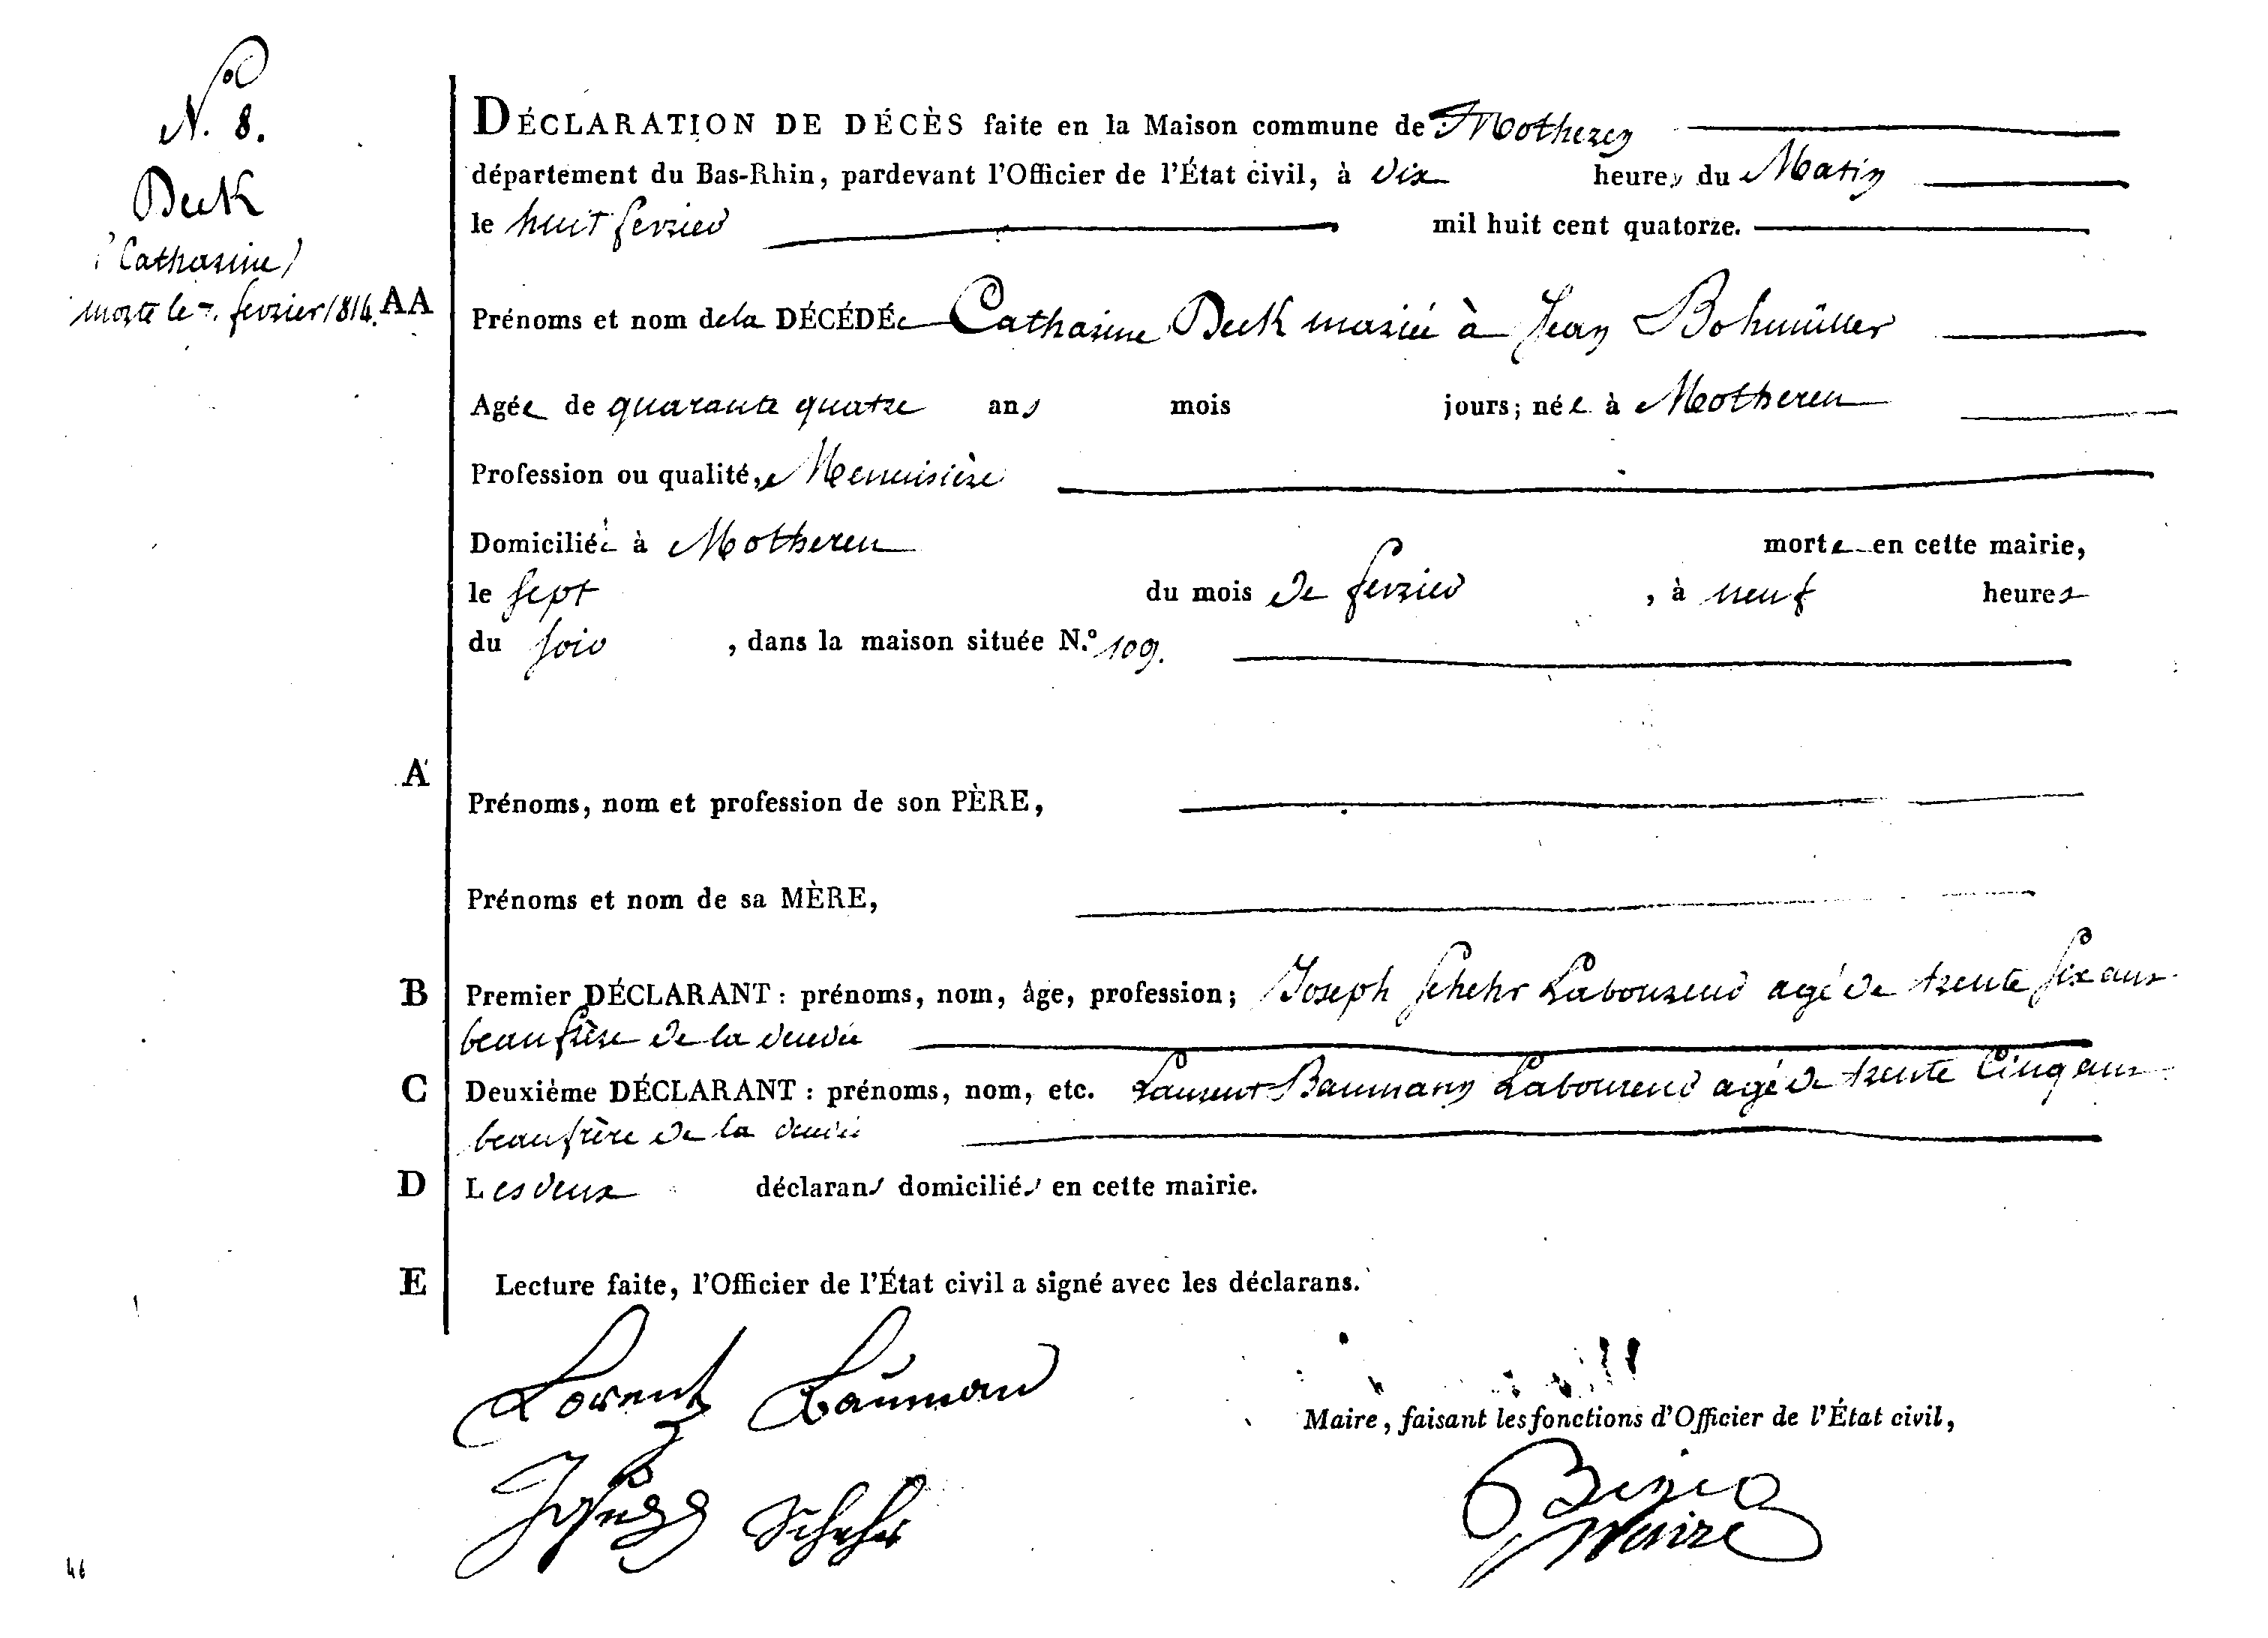 N.º 8.
Deck
(Catharine)
morte le 7. fevrier 1814.
DÉCLARATION DE DÉCÈS faite en la Maison commune de Motheren
département du Bas-Rhin, pardevant l'Officier de l'État civil, à dix heures du Matin
le huit fevrier mil huit cent quatorze.
AA Prénoms et nom de la DÉCÉDÉe Catharine Deck mariée à Jean Bohmüller
Agée de quarante quatre ans mois jours; née à Motheren
Profession ou qualité, Menuisière
Domiciliée à Motheren morte en cette mairie,
le sept du mois de fevrier, à neuf heures
du soir, dans la maison située N.º 109.
A Prénoms, nom et profession de son PÈRE,
Prénoms et nom de sa MÈRE,
B Premier DÉCLARANT: prénoms, nom, âge, profession; Joseph Schehr Laboureur agé de trente six ans
beaufrère de la
C Deuxième DÉCLARANT: prénoms, nom, etc. Laurent Baumann Laboureur agé de trente Cinq ans
beaufrère de la
D Les deux déclarans domiciliés en cette mairie.
E Lecture faite, l'Officier de l'État civil a signé avec les déclarans.
Lorentz Bauman
Maire, faisant les fonctions d'Officier de l'État civil,
Joseph Schehr
Maire
46